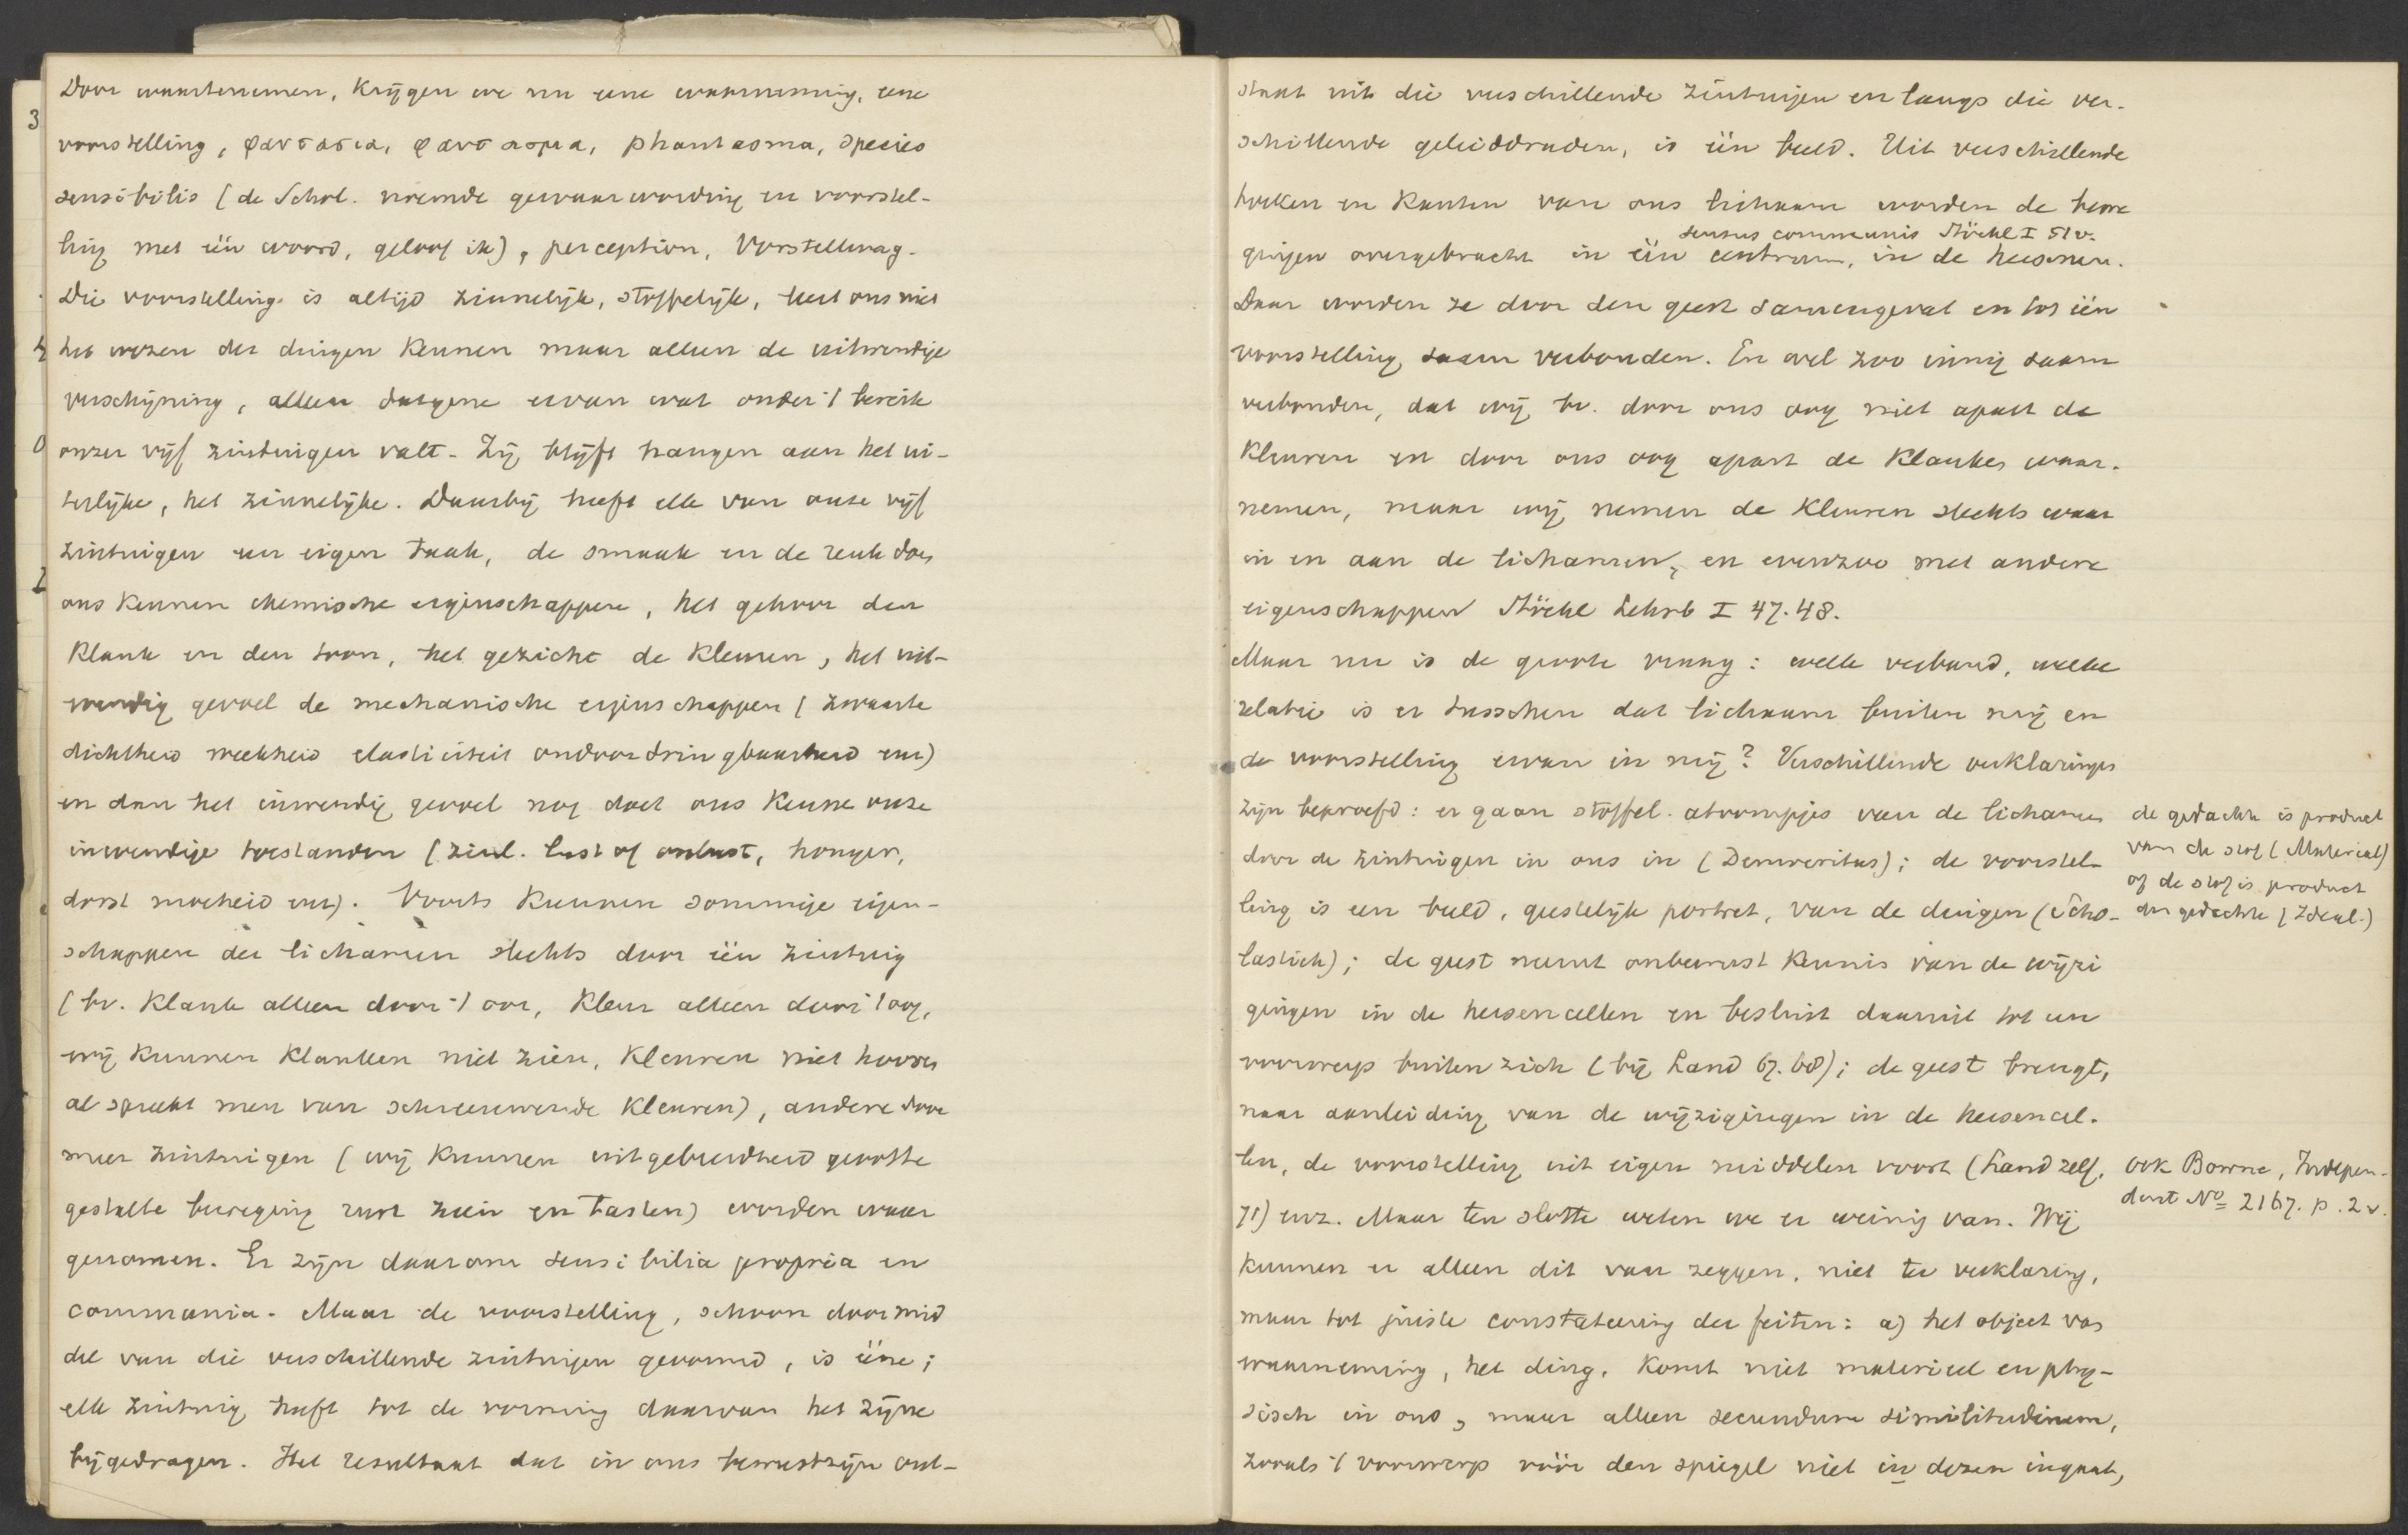 Door waartenemen, krijgen we nu eene waarneming, eene
voorstelling, φαντασια, φαντασμα, phantasma, species
sensibilis (de Schol. noemde gewaarwording en voorstel-
ling met één woord, geloof ik), perception, Vorstellung.
Die voorstelling is altijd zinnelijk, stoffelijk, leert ons niet
het wezen der dingen kennen maar alleen de uitwendige
verschijning, alleen datgene ervan wat onder 't bereik
onzer vijf zintuigen valt. Zij blijft hangen aan het ui-
terlijke, het zinnelijke. Daarbij heeft elk van onze vijf
zintuigen een eigen taak, de smaak en de reuk doen
ons kennen chemische eigenschappen, het gehoor den
klank en den toon, het gezicht de kleuren, het uit-
wendig gevoel de mechanische eigenschappen (zwaarte
dichtheid weekheid elasticiteit ondoordringbaarheid enz)
en dan het inwendig gevoel nog doet ons kennen onze
inwendige toestanden (zinl. lust of onlust, honger,
dorst moeheid enz). Voorts kunnen sommige eigen-
schappen der lichamen slechts door één zintuig
(bv. klank alleen door 't oor, kleur alleen door 't oog,
wij kunnen klanken niet zien, kleuren niet hooren
al spreekt men van schreeuwende kleuren), andere door
meer zintuigen (wij kunnen uitgebreidheid grootte
gestalte beweging rust zien en tasten) worden waar
genomen. Er zijn daarom sensibilia propria en
communia. Maar de voorstelling, schoon door mid
del van die verschillende zintuigen gevormd, is ééne;
elk zintuig heeft tot de vorming daarvan het zijne
bijgedragen. Het resultaat dat in ons bewustzijn ont-
staat uit die verschillende zintuigen en langs die ver-
schillende geleiddraden, is één beeld. Uit verschillende
hoeken en kanten van ons lichaam worden de bewe
sensus communis Stöckl I 51v.
gingen overgebracht in één centrum, in de hersenen.
Daar worden ze door den geest samengevat en tot één
voorstelling saam verbonden. En wel zoo innig saam
verbonden, dat wij bv. door ons oog niet apart de
kleuren en door ons oog apart de klanken waar-
nemen, maar wij nemen de kleuren slechts waar
in en aan de lichamen, en evenzoo met andere
eigenschappen Stöckl Lehrb I 47.48.
Maar nu is de groote vraag: welk verband, welke
relatie is er tusschen dat lichaam buiten mij en
de voorstelling ervan in mij? Verschillende verklaringen
zijn beproefd: er gaan stoffel. atoompjes van de lichamen
door de zintuigen in ons in (Democritus); de voorstel-
ling is een beeld, geestelijk portret, van de dingen (Scho-
lastiek); de geest neemt onbewust kennis van de wijzi
gingen in de hersencellen en besluit daaruit tot een
voorwerp buiten zich (bij Land 67.68); de geest brengt,
naar aanleiding van de wijzigingen in de hersencel-
len, de voorstelling uit eigen middelen voort (Land zelf,
71) enz. Maar ten slotte weten we er weinig van. Wij
kunnen er alleen dit van zeggen, niet ter verklaring,
maar tot juiste constateering der feiten: a) het object van
waarneming, het ding, komt niet materieel en phy-
sisch in ons, maar alleen secundum similitudinem,
zooals 't voorwerp vóór den spiegel niet in dezen ingaat,
de gedachte is product
van de stof (Material)
of de stof is product
der gedachte (Ideal.)
ook Bowne, Indepen-
dent No 2167. p. 2v.
3
4
0